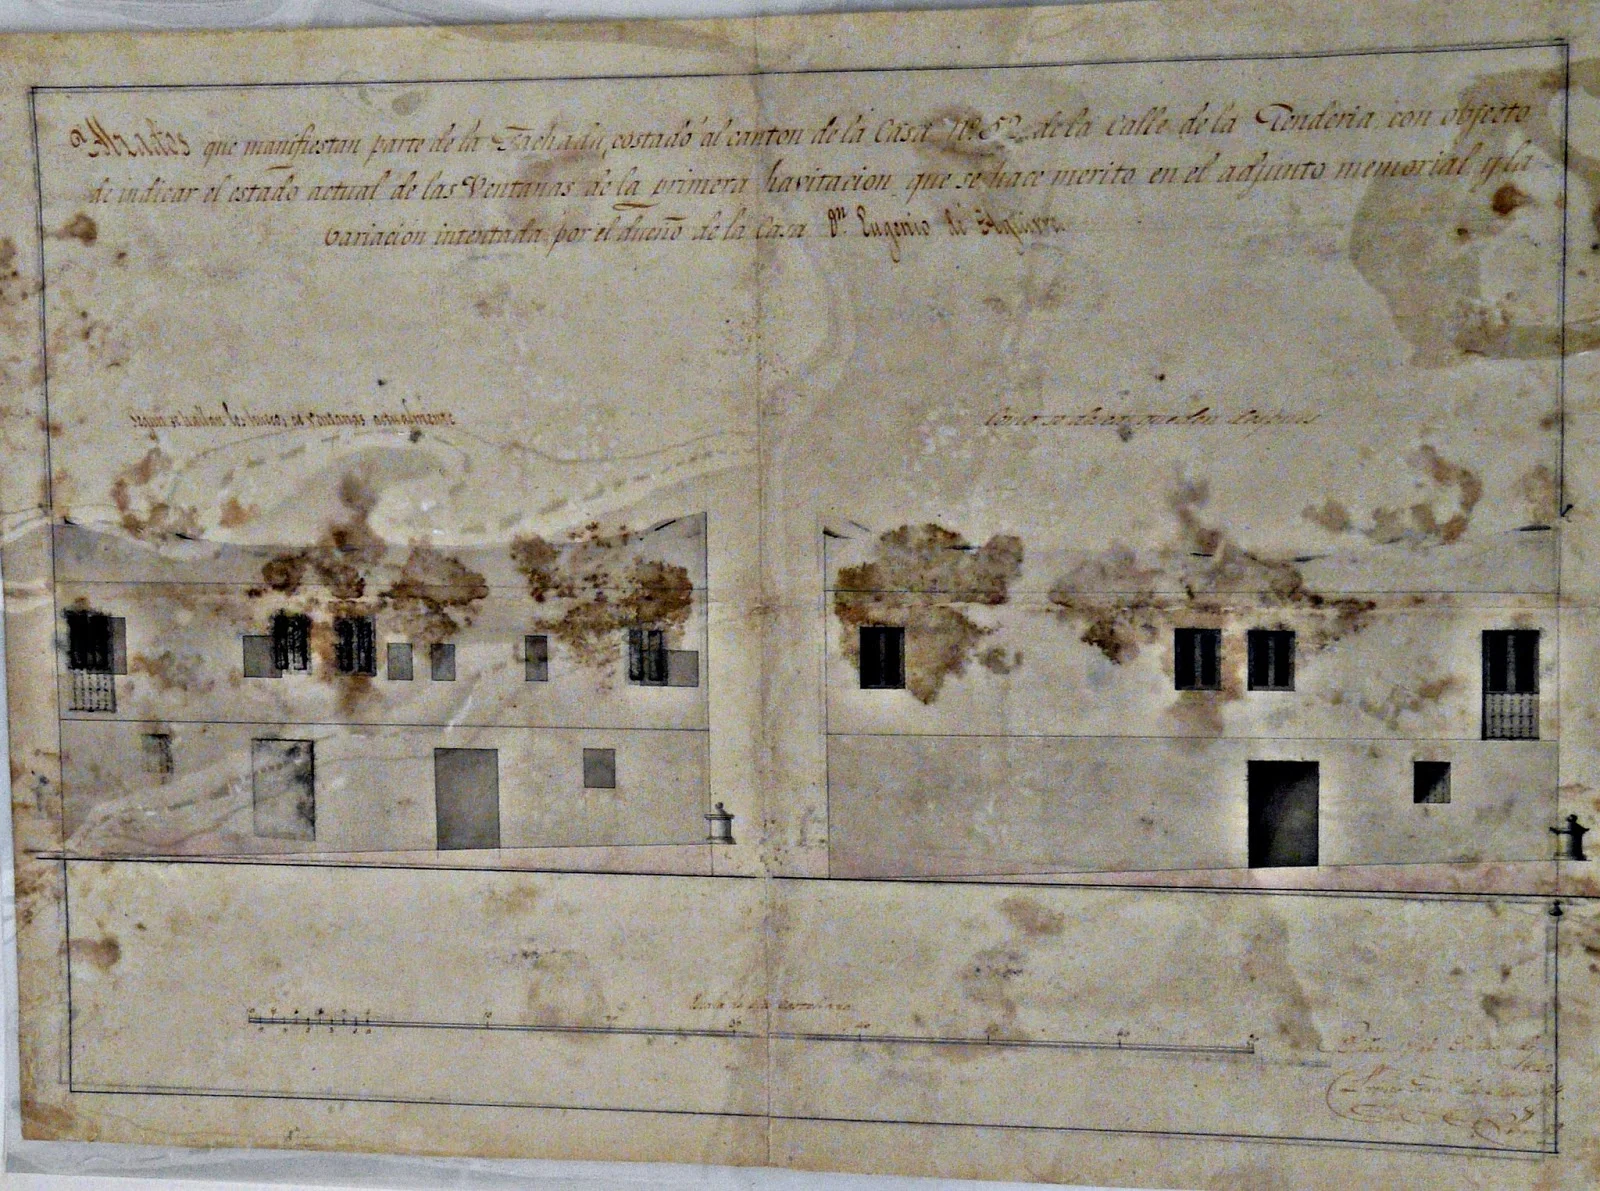 Alzados que manifiestan parte de la Fachada, costado al canton de la Casa Nº 52 de la Calle de la Tenderia con objecto
de indicar el estado actual de las Ventanas de la primera havitacion que se hace merito en el adjunto memorial y la
variacion intentada por el dueño de la Casa Dn. Eugenio de Aguirre.
Segun se hallan los huecos de Ventanas actualmente
Como se desea queden despues
Escala de pies Castellanos